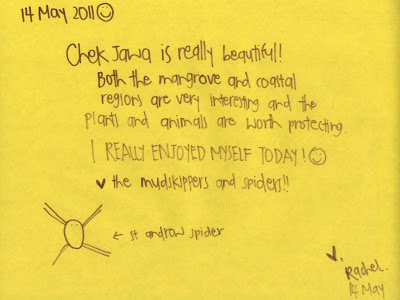 14 May 2011☺
Chek Jawa is really beautiful!
Both the mangrove and coastal
regions are very interesting and the
plants and animals are worth protecting.
I REALLY ENJOYED MYSELF TODAY!☺
♥ the mudskippers and spiders!!
← st androw spider
♥,
Rachel.
14 May